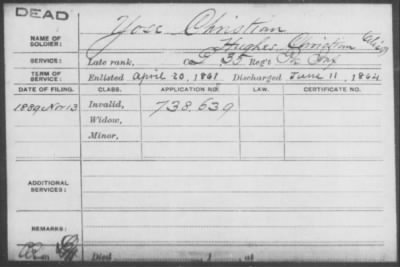 DEAD
NAME OF SOLDIER: Yost Christian
Hughes, Christian Alias
SERVICE: Late rank, Co. 35 Reg't Inf
TERM OF SERVICE: Enlisted April 20, 1861 Discharged June 11, 1864
DATE OF FILING. CLASS. APPLICATION NO. LAW. CERTIFICATE NO.
1889 Nov 13 Invalid, 738.639
Widow,
Minor,
ADDITIONAL SERVICES:
REMARKS:
Died , at